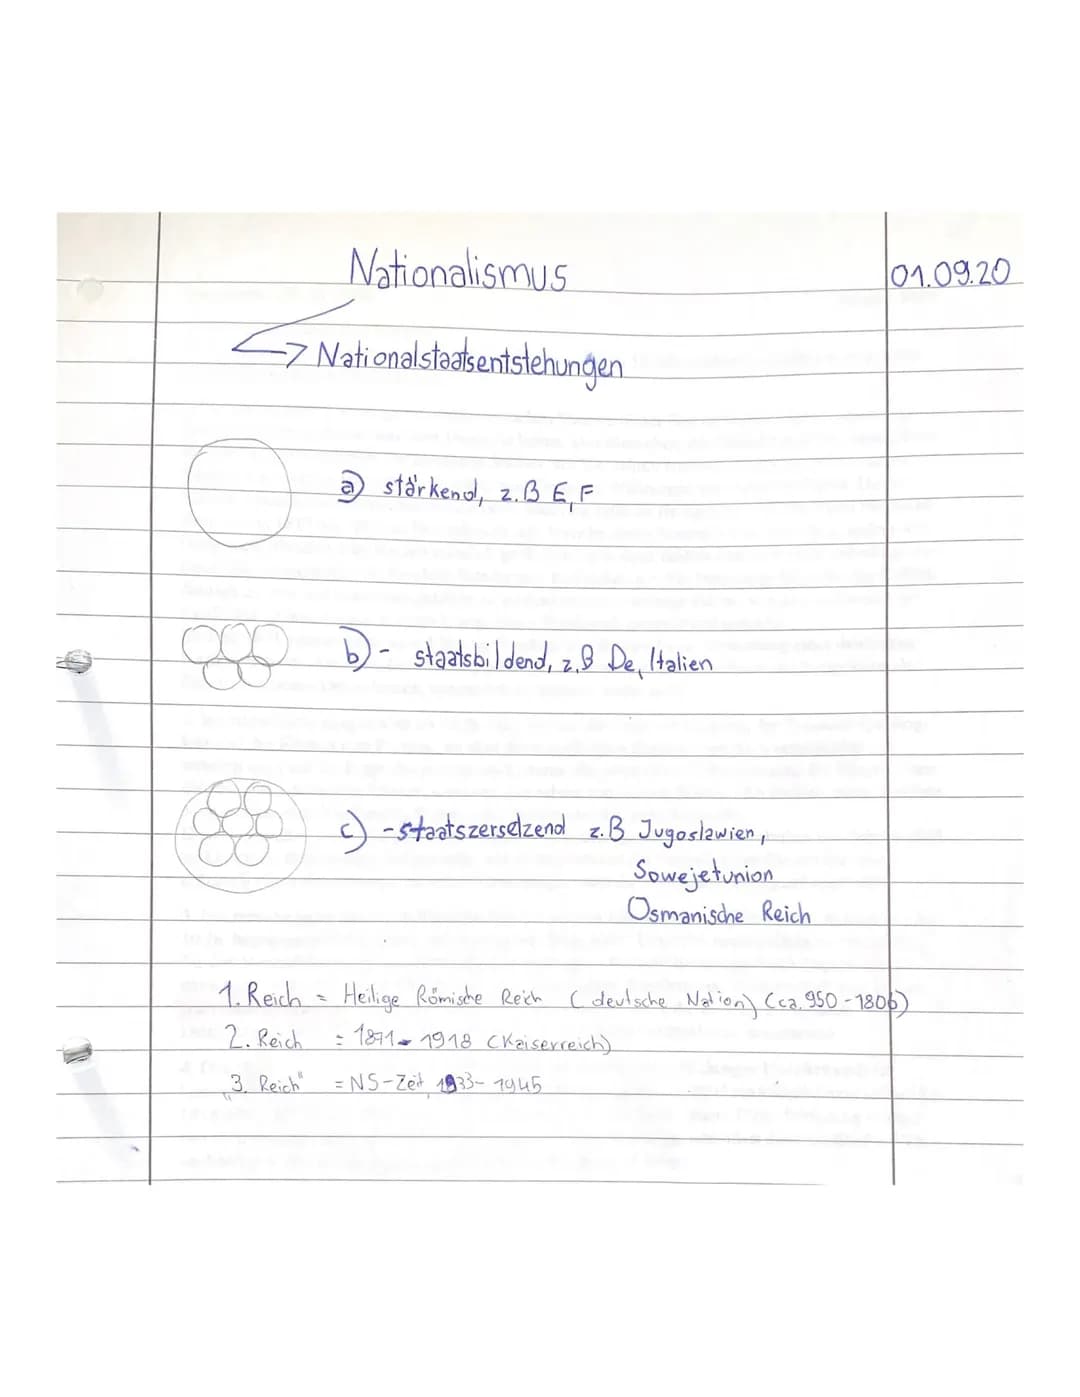 Nationalismus
01.09.20
Nationalstaatsentstehungen
a) stärkend, z.B E, F
b) - staatsbildend, z.B De, Italien
c) - staatszersetzend z.B Jugoslawien,
Sowejetunion
Osmanische Reich
1. Reich = Heilige Römische Reich (deutsche Nation) (ca. 950 - 1806)
2. Reich = 1871 - 1918 (Kaiserreich)
„3. Reich" = NS-Zeit 1933 - 1945